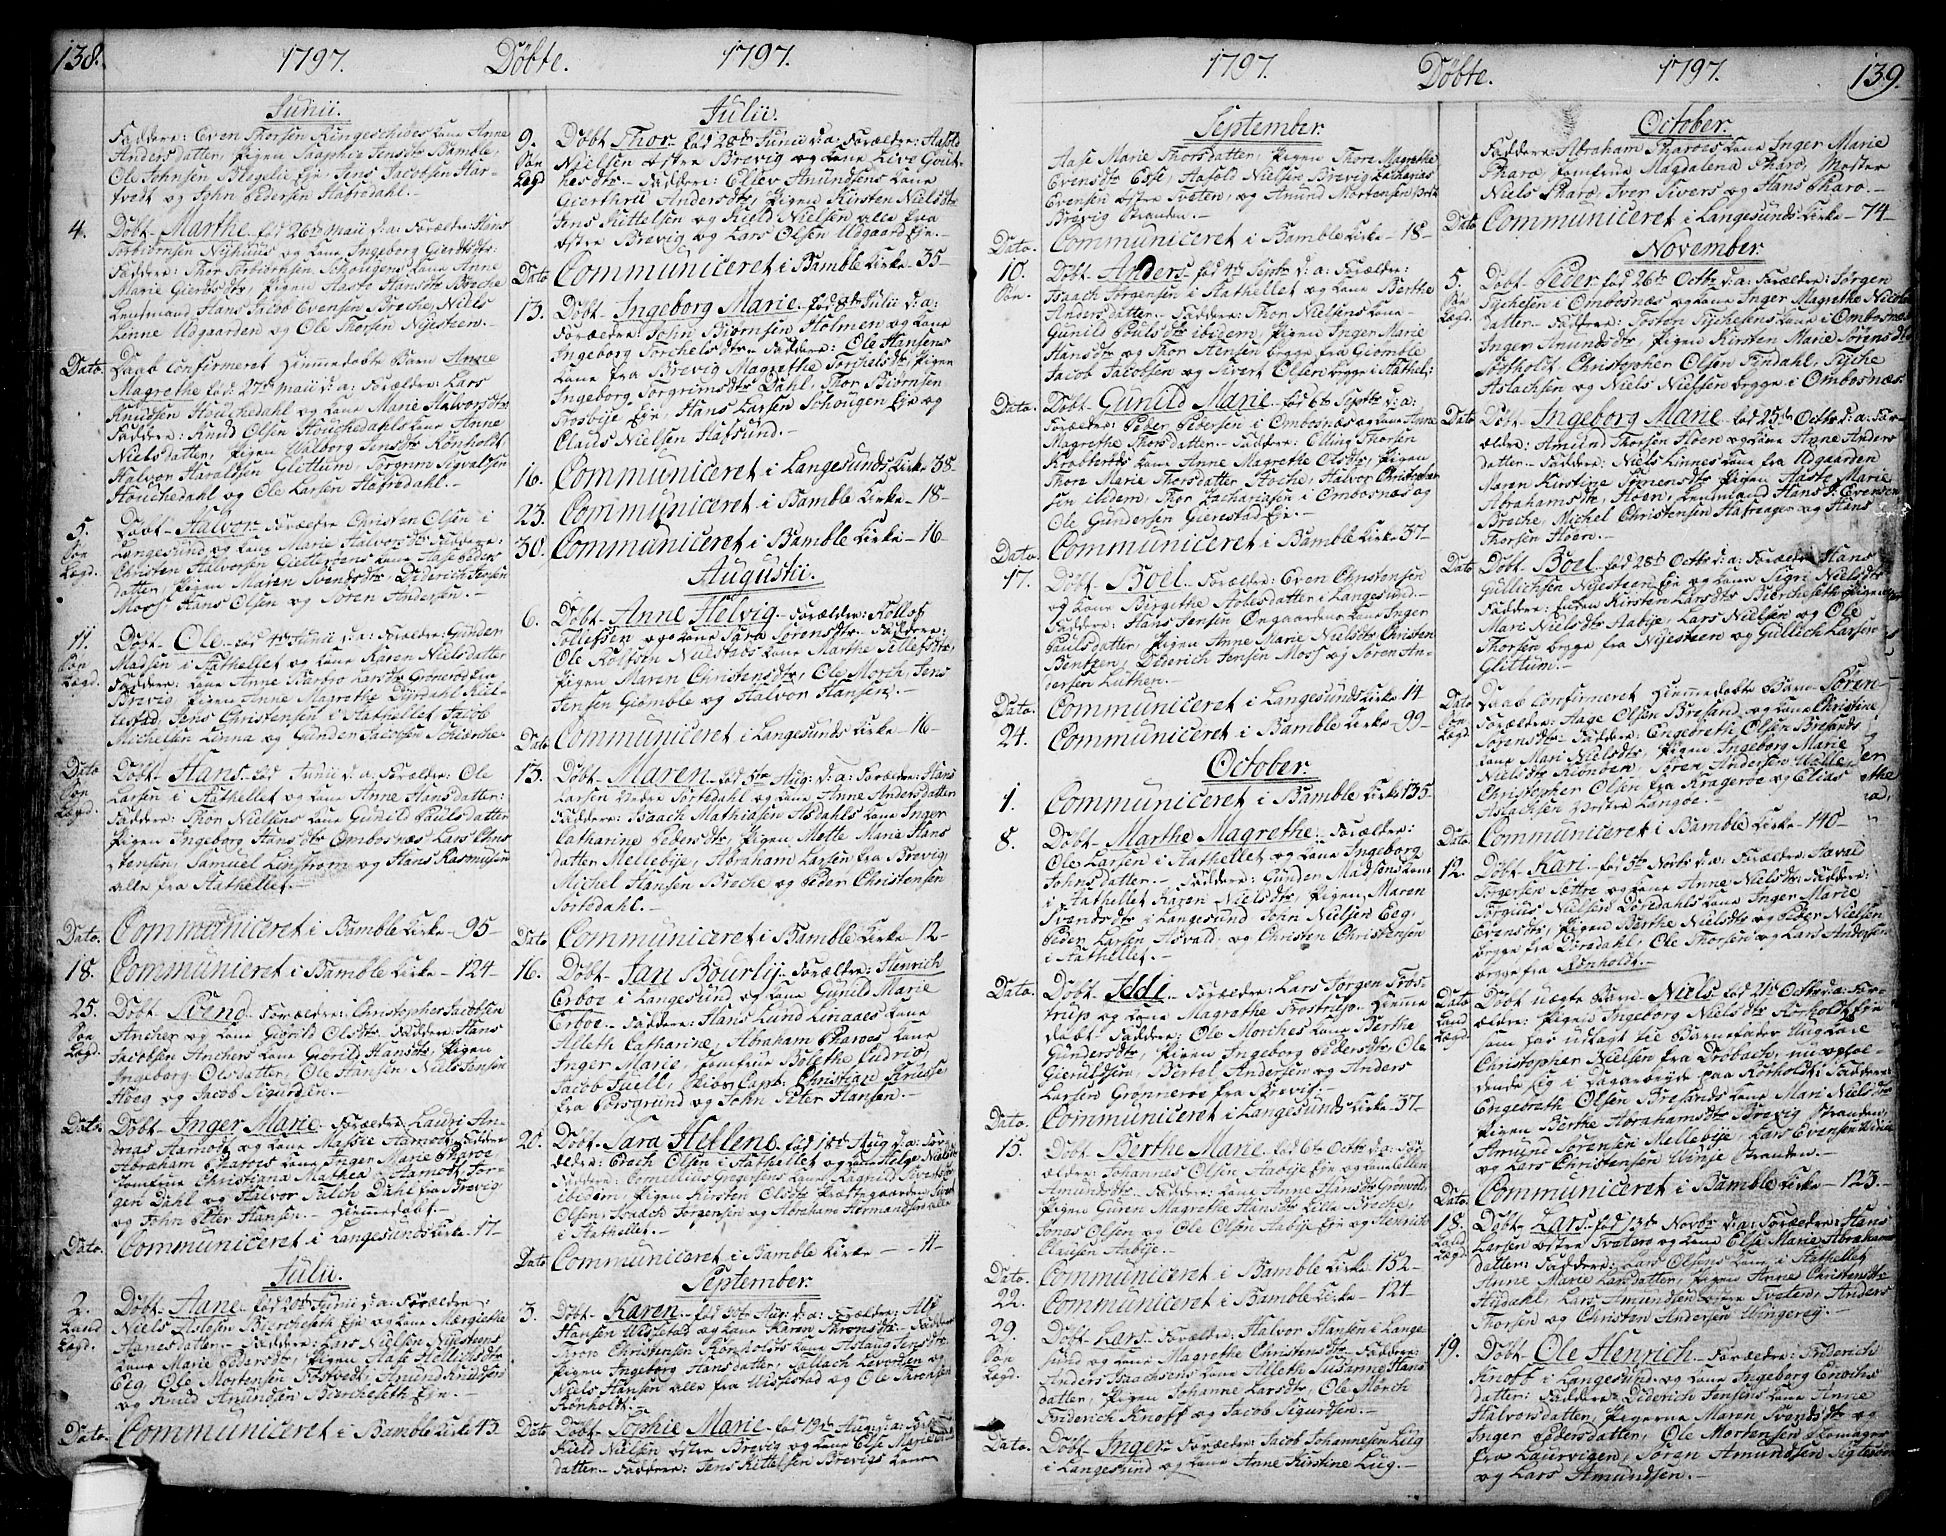 138.
1797. Döbte. 1797.
Junii.
Faddere: Even Thorsen Ringeschibes Kone Anne
Anders datter, Pigen Saaphie Jensdtr Bamble,
Ole Johnsen Blegelie Eje, Jens Jacobsen Har-
vedt og John Pedersen Hafredahl.
4. Döbt Marthe föd 26de Maii d: a: Forældre: Hans
Torbiörnsen Nyehuus og Kone Ingeborg Gierdsdtr
Faddere: Thor Torbiörnsen Schougens Kone Anne
Marie Gierdsdtr, Pigen Aaste Hansdtr Breche
Leutnand Hans Jacob Evensen Breche, Niels
Linne Udgaarden og Ole Thorsen Nyesteen.
Dato. Daab Confirmeret Hiemmedöbte Barn Anne
Magrethe föd: 27de Maii d: a: Forældre: Lars
Knudsen Houchedahl og Kone Marie Halvorsdtr
Faddere: Knud Olsen Houchedahls Kone Anne
Nielsdatter, Pigen Valborg Jensdtr Rönholt,
Halvor Haraldsen Glittum, Torgrim Sigvaldsen
Houchedahl og Ole Larsen Hafredahl.
5. Söe Lægd. Döbt Halvor Forældre Christen Olsen i
Langesund og Kone Marie Halvorsdtr Faddere:
Christen Halvorsen Kone Aase Peders
datter, Pigen Maren Svendsdtr Diderich Jensen
Moss Hans Olsen og Sören Andersen.
11. Söe Lægd. Döbt Ole föd 4de Junii d: a: Forældre: Gunder
Madsen i Aathellet og Kone Karen Nielsdatter
Faddere: Kone Anne Larsdtr Grönneröe fra
Brevig Pigen Anne Magrethe
Jens Christensen i Aathellet Jacob
Michelsen Linna og Gunder Jacobsen
Dato Söe Lægd. Döbt Hans föd Junii d: a: Forældre: Ole
Larsen i Aathellet og Kone Anne Hansdatter:
Faddere: Thor Nielsens Kone Gunild Paulsdatter
Pigen Ingeborg Hansdtr Ombosnæs Lars Chri
stensen, Samuel Lingstrom og Hans Rasmusen
alle fra Aathellet.
Dato. Communiceret i Bamble Kirke 95
18. Communiceret i Bamble Kirke 124
25. Söe Lægd. Döbt Svend Forældre: Christopher Jacobsen
Ancher og Kone Giöril Olsdtr Faddere Hans
Jacobsen Anchers Kone Giöril Hansdtr, Pigen
Ingeborg Olsdatter, Ole Hansen, Niels Jensen
Hoeg og Jacob Sigurdsen.
Dato. Döbt Inger Marie Forældre Lauri An-
dreas Aamodt og Kone Massie Aamodt Faddere
Abraham Pharoes Kone Inger Marie Pharoe
Jomfrue Christiana Mathea Aamodt, Jör-
gen Dahl og Halvor Falch Dahl fra Brevig
og John Peter Hansen. Hiemmedöbt.
Dato. Communiceret i Langesunds Kirke 17
Julii.
2. Land Lægd. Döbt Aane föd 20de Junii d: a: Forældre:
Niels Aslesen Bierchesett Eje og Kone Mergrethe
Hansdatter Faddere: Lars Nielsen Nyesteens
Kone Marie Pedersdtr, Pigen Aase Hellichsdtr
Eeg, Ole Mortensen Tostvedt, Amund Knudsen
og Knud Amundsen Bierchesett Eje.
Dato. Communiceret i Bamble Kirke 43.
Julii.
9. Söe Lægd Döbt Thor föd 28de Junii d: a: Forældre: Aafold
Nielsen östre Brevig og Kone Live Gout-
hesdtr Faddere: Ellev Anundsens Kone
Gierthrü Andersdtr, Pigen Kirsten Nielsdtr
Jens Kittelsen og Kield Nielsen alle fra
östre Brevig og Lars Olsen Udgaard Eje.
Dato Communiceret i Bamble Kirke 35
13. Döbt Ingeborg Marie föd 8de Julii d: a:
Forældre: John Biörnsen Holmen og Kone
Ingeborg Torchelsdtr Faddere: Ole Hansens
Kone fra Brevig Magrethe Torchelsdtr, Pigen
Ingeborg Torgrimsdtr Dahl, Thor Biörnsen
Trosbÿe Eje, Hans Larsen Schougen Eje og
Claus Nielsen Hafsund.
16. Communiceret i Langesunds Kirke 38
23. Communiceret i Bamble Kirke 18
30. Communiceret i Bamble Kirke 16
Augustii.
6. Döbt Anne Helvig Forældre: Rollof
Tollefsen og Kone Sara Sörensdtr Faddere:
Ole Rolfsen Nustads Kone Marthe Tellefsdtr,
Pigen Maren Christensdtr, Ole Morch, Jens
Jensen Giömble og Halvor Hansen.
Dato Communiceret i Langesunds Kirke 16
13. Döbt Maren föd 5te Aug: d: a: Forældre: Hans
Larsen nedre Sortedahl og Kone Anne Andersdatter
Faddere: Isaach Mathiasen Asdahls Kone Inger
Catharine Pedersdtr Pigen Mette Marie Hans
datter Mellebÿe, Abraham Larsen fra Brevig
Michel Hansen Breche og Peder Christensen
Sortedahl.
Dato Communiceret i Bamble Kirke 12
16. Döbt Jan Bourlij Forældre: Henrich
Erboe i Langesund og Kone Gunild Marie
Erboe Faddere: Hans Lund Linaaes Kone
Alleth Catharine, Abraham Pharoes Kone
Inger Marie, Jomfrue Bolethe Cudrio,
Jacob Juell, Skiöv. Capt. Christian Kruuse,
fra Porsgrund og John Peter Hansen.
20. Döbt Sara Hellene föd 18de Aug: d: a: Foræ
ældre: Erich Olsen i Aathellet og Kone Helge Nielsdtr
Faddere: Cornelius Gregersens Kone Ragnild Iversdtr
ibidem, Pigen Kirsten Olsdtr Prættegaarden, Sivert
Olsen, Isaach Jörgensen og Abraham Hermandsen alle
i Aathellet.
Dato Communiceret i Bamble Kirke 11
September.
3. Döbt Karen föd 30te Aug: d: a: Forældre: Alf
Hansen Wissestad og Kone Karen Thronsdtr Faddere
Tron Christensen Rönholts Kone Aslaug Jensdtr
Pigen Ingeborg Hansdatter, Tallach Levorsen og
Niels Hansen alle fra Wissestad og Ole Thronsen
Rönholt.
Dato Döbt Sophie Marie föd 19de Aug: d: a: Forældre
Kield Nielsen östre Brevig og Kone Else Marie
datter Faddere: Jens Kittelsen Brevigs Kone
1797. Döbte. 1797. 139.
September.
Aase Marie Thorsdatter, Pigen Thore Magrethe
Evensdtr Esse, Aafold Nielsen Brevig Zacharias
Evensen östre Tveten, og Amund Mortensen
Brevig Stranden.
Dato. Communiceret i Bamble Kirke 18
10. Söe. Döbt Anders föd 4de Septr d: a: Forældre:
Isaach Jörgensen i Aathellet og Kone Berthe
Andersdatter. Faddere: Thor Nielsens Kone
Gunild Pauls dtr ibidem, Pigen Inger Marie
Hansdtr og Thor Jensen begge fra Giömble
Jacob Jacobsen og Sivert Olsen begge i Aathel:
Dato. Döbt Gunild Marie föd 6te Septbr d: a:
Forældre: Peder Pedersen i Ombosnæs og Kone Anne
Magrethe Thorsdatter Faddere: Elling Thorsen
Krabberöds Kone Anne Magrethe Olsdtr, Pigen
Thore Marie Thorsdatter Hoche, Halvor Christopher
sen ibidem, Thor Zachariasen i Ombosnæs og
Ole Gundersen Gierestad Eje.
Dato. Communiceret i Bamble Kirke 37
17. Döbt Boel Forældre: Even Christensen
og Kone Bergethe Aolesdatter i Langesund.
Faddere: Hans Jensen Ongaardens Kone Inger
Paulsdatter, Pigen Anne Marie Nielsdtr Christen
Bentzen, Diderich Jensen Moss og Sören An-
dersen Luthen.
Dato. Communiceret i Langesunds Kirke 14
24. Communiceret i Bamble Kirke 99
October.
1. Communiceret i Bamble Kirke 135
8. Döbt Marthe Magrethe Forældre:
Ole Larsen i Aathellet og Kone Ingeborg
Johnsdatter. Faddere: Gunder Madsens Kone
i Aathellet Karen Nielsdtr, Pigen Maren
Svendsdtr i Langesund John Nielsen Eeg,
Peder Larsen Asvald og Christen Christensen
i Aathellet.
Dato. Döbt Iddi Forældre: Lars Jörgen Tros-
trup og Kone Magrethe Trostrup. Hiemme
döbt Faddere: Ole Morches Kone Berthe
Gundersdtr, Pigen Ingeborg Pedersdtr, Ole
Gierulfsen, Bertel Andersen og Anders
Larsen Grönneröe fra Brevig.
Dato. Communiceret i Langesunds Kirke 37
15. Döbt Berthe Marie föd 6te Octbr d: a: For
ældre: Johannes Olsen Aabÿe Eje og Kone Ellen
Amundsdtr Faddere: Kone Anne Hansdtr Grönvold,
Pigen Guren Magrethe Hansdtr Lille Breche,
Jonas Olsen og Ole Olsen Aabÿe Eje og Henrich
Clausen Aabÿe.
Dato. Communiceret i Bamble Kirke 152
22. Communiceret i Bamble Kirke 124
29. Söe Lægd. Döbt Lars Forældre: Halvor Hansen i Lange
sund og Kone Magrethe Christensdtr Faddere:
Anders Isaachsens Kone Alleth Susanne Hans
datter, Pigen Johanne Larsdtr, Ole Mörch
Friderich Knoff og Jacob Sigurdsen.
Dato. Döbt Inger Forældre: Jacob Johannesen Lug
i Langesund og Kone Anne Kirstine Lug.
October.
Faddere: Abraham Pharoes Kone Inger Marie
Pharo, Jomfrue Magdalena Pharo, Mester
Niels Pharo, Iver Sivers og Hans Pharo.
Dato Communiceret i Langesunds Kirke 74
November.
5. Söe Lægd. Döbt Peder föd 26de Octbr d: a: Forældre: Jörgen
Tÿchesen i Ombosnæs og Kone Inger Magrethe Nicolai
datter Faddere: Tosten Tÿchesens Kone i Ombosnæs
Inger Amundsdtr, Pigen Kirsten Marie Sörensdtr
Söthholt, Christopher Olsen Findahl, Tÿche
Aslachsen og Niels Nielsen begge i Ombosnæs.
Dato Döbt Ingeborg Marie föd 25de Octbr d: a: For
ældre: Amund Thorsen Hoen og Kone Anne Anders
datter Faddere: Niels Linnes Kone fra Udgaarden
Maren Kirstine Simensdtr Pigen Aaste Marie
Abrahamsdtr Hoen, Leutnand Hans J. Evensen
Breche, Michel Christensen Hafraager og Hans
Thorsen Hoen.
Dato Döbt Boel föd 28de Octbr d: a: Forældre Hans
Gullichsen Nyesteen Eje og Kone Sigri Nielsdtr
Faddere: Kirsten Larsdtr Bierchesett Pigen
Mari Nielsdtr Aabÿe, Lars Nielsen og Ole
Thorsen begge fra Nyesteen og Gullich Larsen
Glittum.
Dato Söe Lægd. Daab Confirmeret Hiemmedöbte Barn Sören
Forældre: Aage Olsen Bresand og Kone Christine
Sörensdtr Faddere: Engebreth Olsen Bresands
Kone Mari Nielsdtr, Pigen Ingeborg Marie
Nielsdtr Rionden, Sören Andersen
Christopher Olsen fra Krageröe og Elias
Aslachsen östre Langöe.
Dato. Communiceret i Bamble Kirke 140
12. Döbt Kari föd 5te Novbr d: a: Forældre: Aavald
Torgersen Sættre og Kone Anne Nielsdtr Faddere:
Torgius Nielsen Döredahls Kone Inger Marie
Evensdtr, Pigen Berthe Nielsdtr og Peder Nielsen
begge fra Döredahl, Ole Thorsen og Lars Andersen
begge fra Rönholt.
Dato Land Lægd. Döbt uægte Barn Niels föd 21de Octbr d: a: For
ældre: Pigen Ingeborg Nielsdtr Rorholt Eje
som har udlagt til Barnefader Ung Karl
Christopher Nielsen fra Drobach, nu ophol-
dende sig i Dagarbeÿde paa Rorholt: Faddere:
Engebreth Olsen Bresands Kone Mari Nielsdtr
Pigen Berthe Abrahamsdtr Brevig Stranden,
Amund Sörensen Mellebÿe, Lars Evensen
og Lars Christensen Winje Stranden.
Dato Communiceret i Bamble Kirke 123.
18. Land Lægd. Döbt Lars föd 13de Novbr d: a: Forældre: Hans
Larsen östre Tvaten og Kone Else Marie Abrahams
datter. Faddere: Lars Olsens Kone i Aathellet
Anne Marie Larsdatter, Pigen Anne Christensdtr
Asdahl, Lars Amundsen östre Tveten, Anders
Thorsen og Christen Andersen Wingereg.
19. Döbt Ole Henrich Forældre: Friderich
Knoff i Langesund og Kone Ingeborg Enochs
datter: Faddere: Diderich Jensens Kone Anne
Halvorsdatter, Pigerne Maren Svendsdtr og
Inger Pedersdatter, Ole Mortensen Skomager
fra Laurvigen, Sören Amundsen Sigtesöen
og Lars Amundsen.